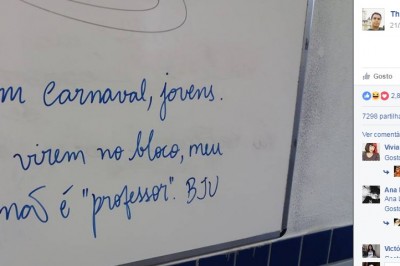 m Carnaval, jovens.
virem no bloco, meu
não é "professor". BJU
Th
21/
Gosto
2,8
7298 partilha
Ver comentá
Vivia
Gosto
Ana
Ana L
Gosto
Victó